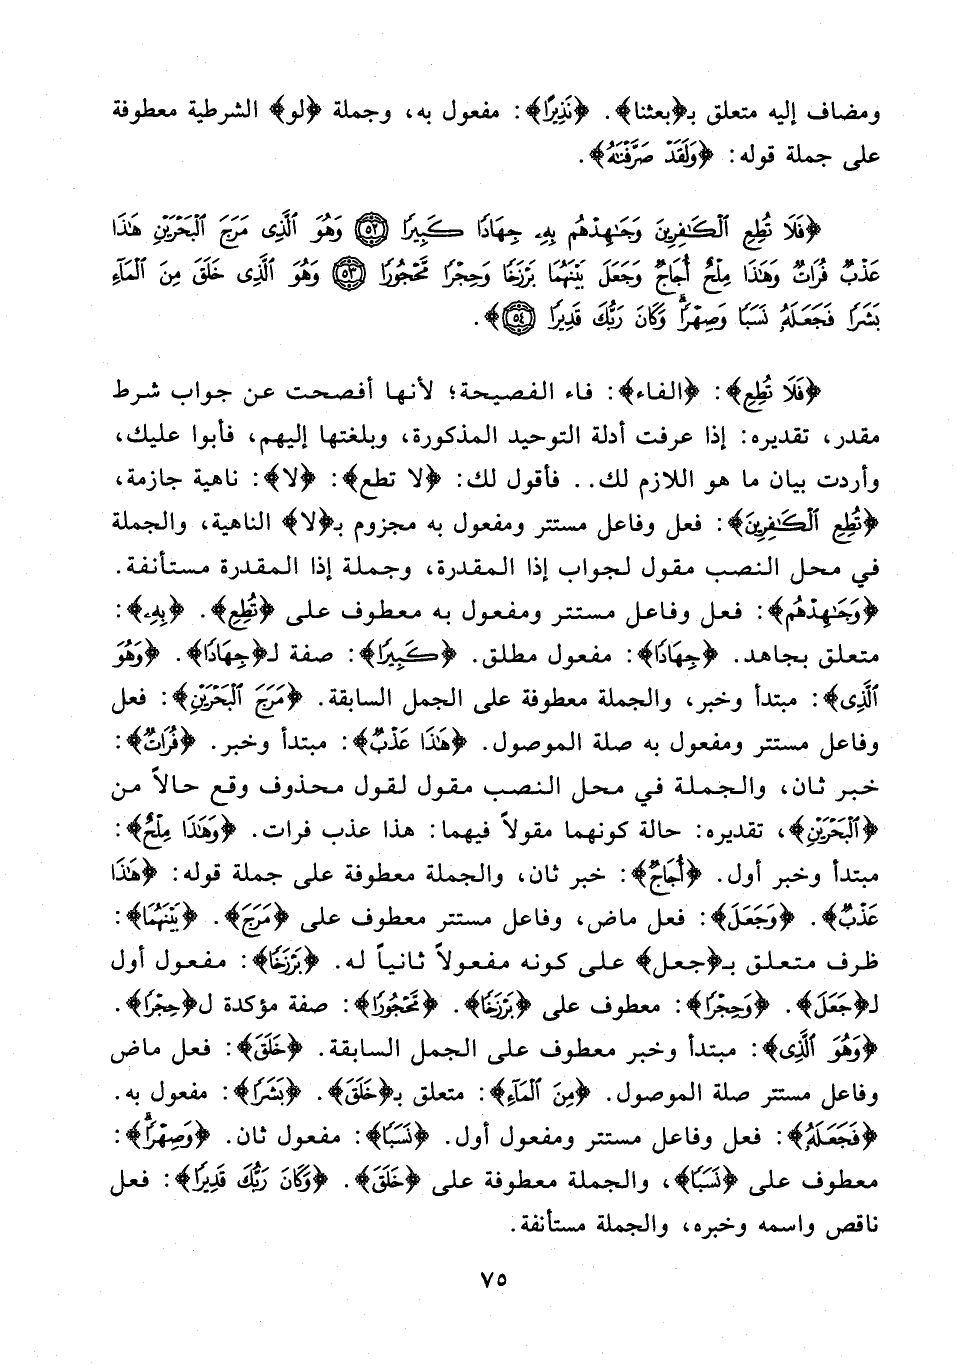 ومضاف إليه متعلق بـ﴿بعثنا﴾. ﴿نَذِيرًا﴾: مفعول به، وجملة ﴿لو﴾ الشرطية معطوفة
على جملة قوله: ﴿وَلَقَدْ صَرَّفْنَٰهُ﴾.
﴿فَلَا تُطِعِ ٱلْكَٰفِرِينَ وَجَٰهِدْهُم بِهِۦ جِهَادًا كَبِيرًا ٥٢ وَهُوَ ٱلَّذِى مَرَجَ ٱلْبَحْرَيْنِ هَٰذَا
عَذْبٌ فُرَاتٌ وَهَٰذَا مِلْحٌ أُجَاجٌ وَجَعَلَ بَيْنَهُمَا بَرْزَخًا وَحِجْرًا مَّحْجُورًا ٥٣ وَهُوَ ٱلَّذِى خَلَقَ مِنَ ٱلْمَآءِ
بَشَرًا فَجَعَلَهُۥ نَسَبًا وَصِهْرًاۗ وَكَانَ رَبُّكَ قَدِيرًا ٥٤﴾.
﴿فَلَا تُطِعِ﴾: ﴿الفاء﴾: فاء الفصيحة؛ لأنها أفصحت عن جواب شرط
مقدر، تقديره: إذا عرفت أدلة التوحيد المذكورة، وبلغتها إليهم، فأبوا عليك،
وأردت بيان ما هو اللازم لك.. فأقول لك: ﴿لا تطع﴾: ﴿لا﴾: ناهية جازمة،
﴿تُطِعِ ٱلْكَٰفِرِينَ﴾: فعل وفاعل مستتر ومفعول به مجزوم بـ﴿لا﴾ الناهية، والجملة
في محل النصب مقول لجواب إذا المقدرة، وجملة إذا المقدرة مستأنفة.
﴿وَجَٰهِدْهُم﴾: فعل وفاعل مستتر ومفعول به معطوف على ﴿تُطِعِ﴾. ﴿بِهِۦ﴾:
متعلق بجاهد. ﴿جِهَادًا﴾: مفعول مطلق. ﴿كَبِيرًا﴾: صفة لـ﴿جِهَادًا﴾. ﴿وَهُوَ
ٱلَّذِى﴾: مبتدأ وخبر، والجملة معطوفة على الجمل السابقة. ﴿مَرَجَ ٱلْبَحْرَيْنِ﴾: فعل
وفاعل مستتر ومفعول به صلة الموصول. ﴿هَٰذَا عَذْبٌ﴾: مبتدأ وخبر. ﴿فُرَاتٌ﴾:
خبر ثان، والجملة في محل النصب مقول لقول محذوف وقع حالاً من
﴿ٱلْبَحْرَيْنِ﴾، تقديره: حالة كونهما مقولاً فيهما: هذا عذب فرات. ﴿وَهَٰذَا مِلْحٌ﴾:
مبتدأ وخبر أول. ﴿أُجَاجٌ﴾: خبر ثان، والجملة معطوفة على جملة قوله: ﴿هَٰذَا
عَذْبٌ﴾. ﴿وَجَعَلَ﴾: فعل ماض، وفاعل مستتر معطوف على ﴿مَرَجَ﴾. ﴿بَيْنَهُمَا﴾:
ظرف متعلق بـ﴿جعل﴾ على كونه مفعولاً ثانياً له. ﴿بَرْزَخًا﴾: مفعول أول
لـ﴿جَعَلَ﴾. ﴿وَحِجْرًا﴾: معطوف على ﴿بَرْزَخًا﴾. ﴿مَّحْجُورًا﴾: صفة مؤكدة لـ﴿حِجْرًا﴾.
﴿وَهُوَ ٱلَّذِى﴾: مبتدأ وخبر معطوف على الجمل السابقة. ﴿خَلَقَ﴾: فعل ماض
وفاعل مستتر صلة الموصول. ﴿مِنَ ٱلْمَآءِ﴾: متعلق بـ﴿خَلَقَ﴾. ﴿بَشَرًا﴾: مفعول به.
﴿فَجَعَلَهُۥ﴾: فعل وفاعل مستتر ومفعول أول. ﴿نَسَبًا﴾: مفعول ثان. ﴿وَصِهْرًاۗ﴾:
معطوف على ﴿نَسَبًا﴾، والجملة معطوفة على ﴿خَلَقَ﴾. ﴿وَكَانَ رَبُّكَ قَدِيرًا﴾: فعل
ناقص واسمه وخبره، والجملة مستأنفة.
٧٥